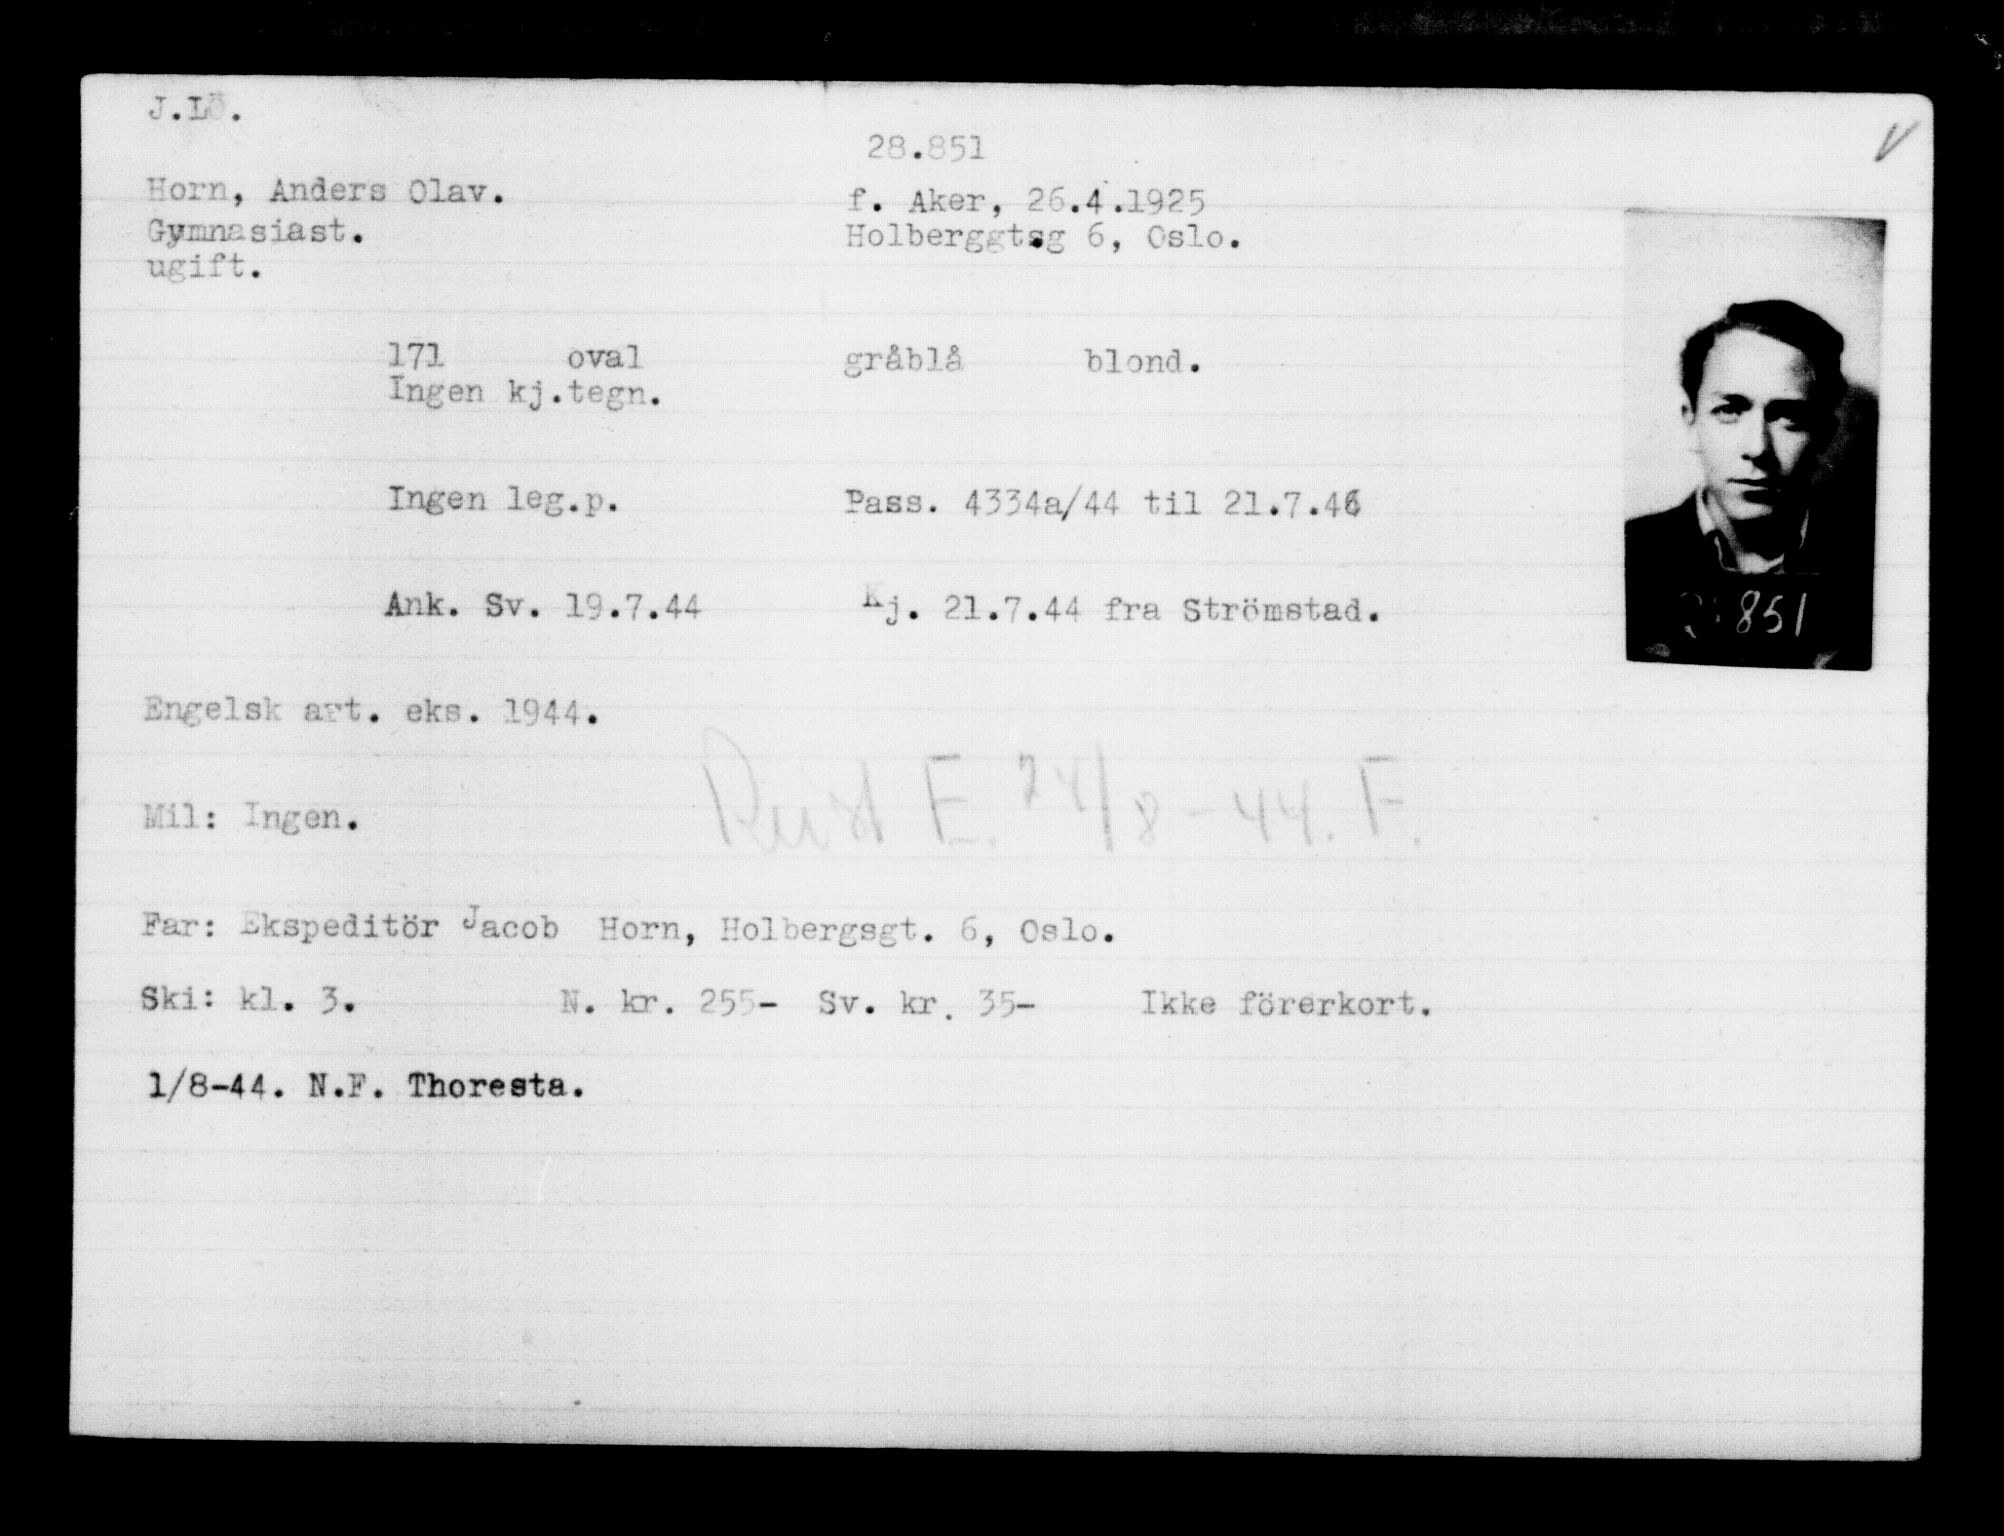 J.LÖ.
28.851
Horn, Anders Olav. f. Aker, 26.4.1925
Gymnasiast. Holberggtsg 6, Oslo.
ugift.
171 oval gråblå blond.
Ingen kj.tegn.
Ingen leg.p. Pass. 4334a/44 til 21.7.46
Ank. Sv. 19.7.44 Kj. 21.7.44 fra Strömstad.
851
Engelsk art. eks. 1944.
E. 24/8-44. F.
Mil: Ingen.
Far: Ekspeditör Jacob Horn, Holbergsgt. 6, Oslo.
Ski: kl. 3. N. kr. 255- Sv. kr. 35- Ikke förerkort.
1/8-44. N.F. Thoresta.